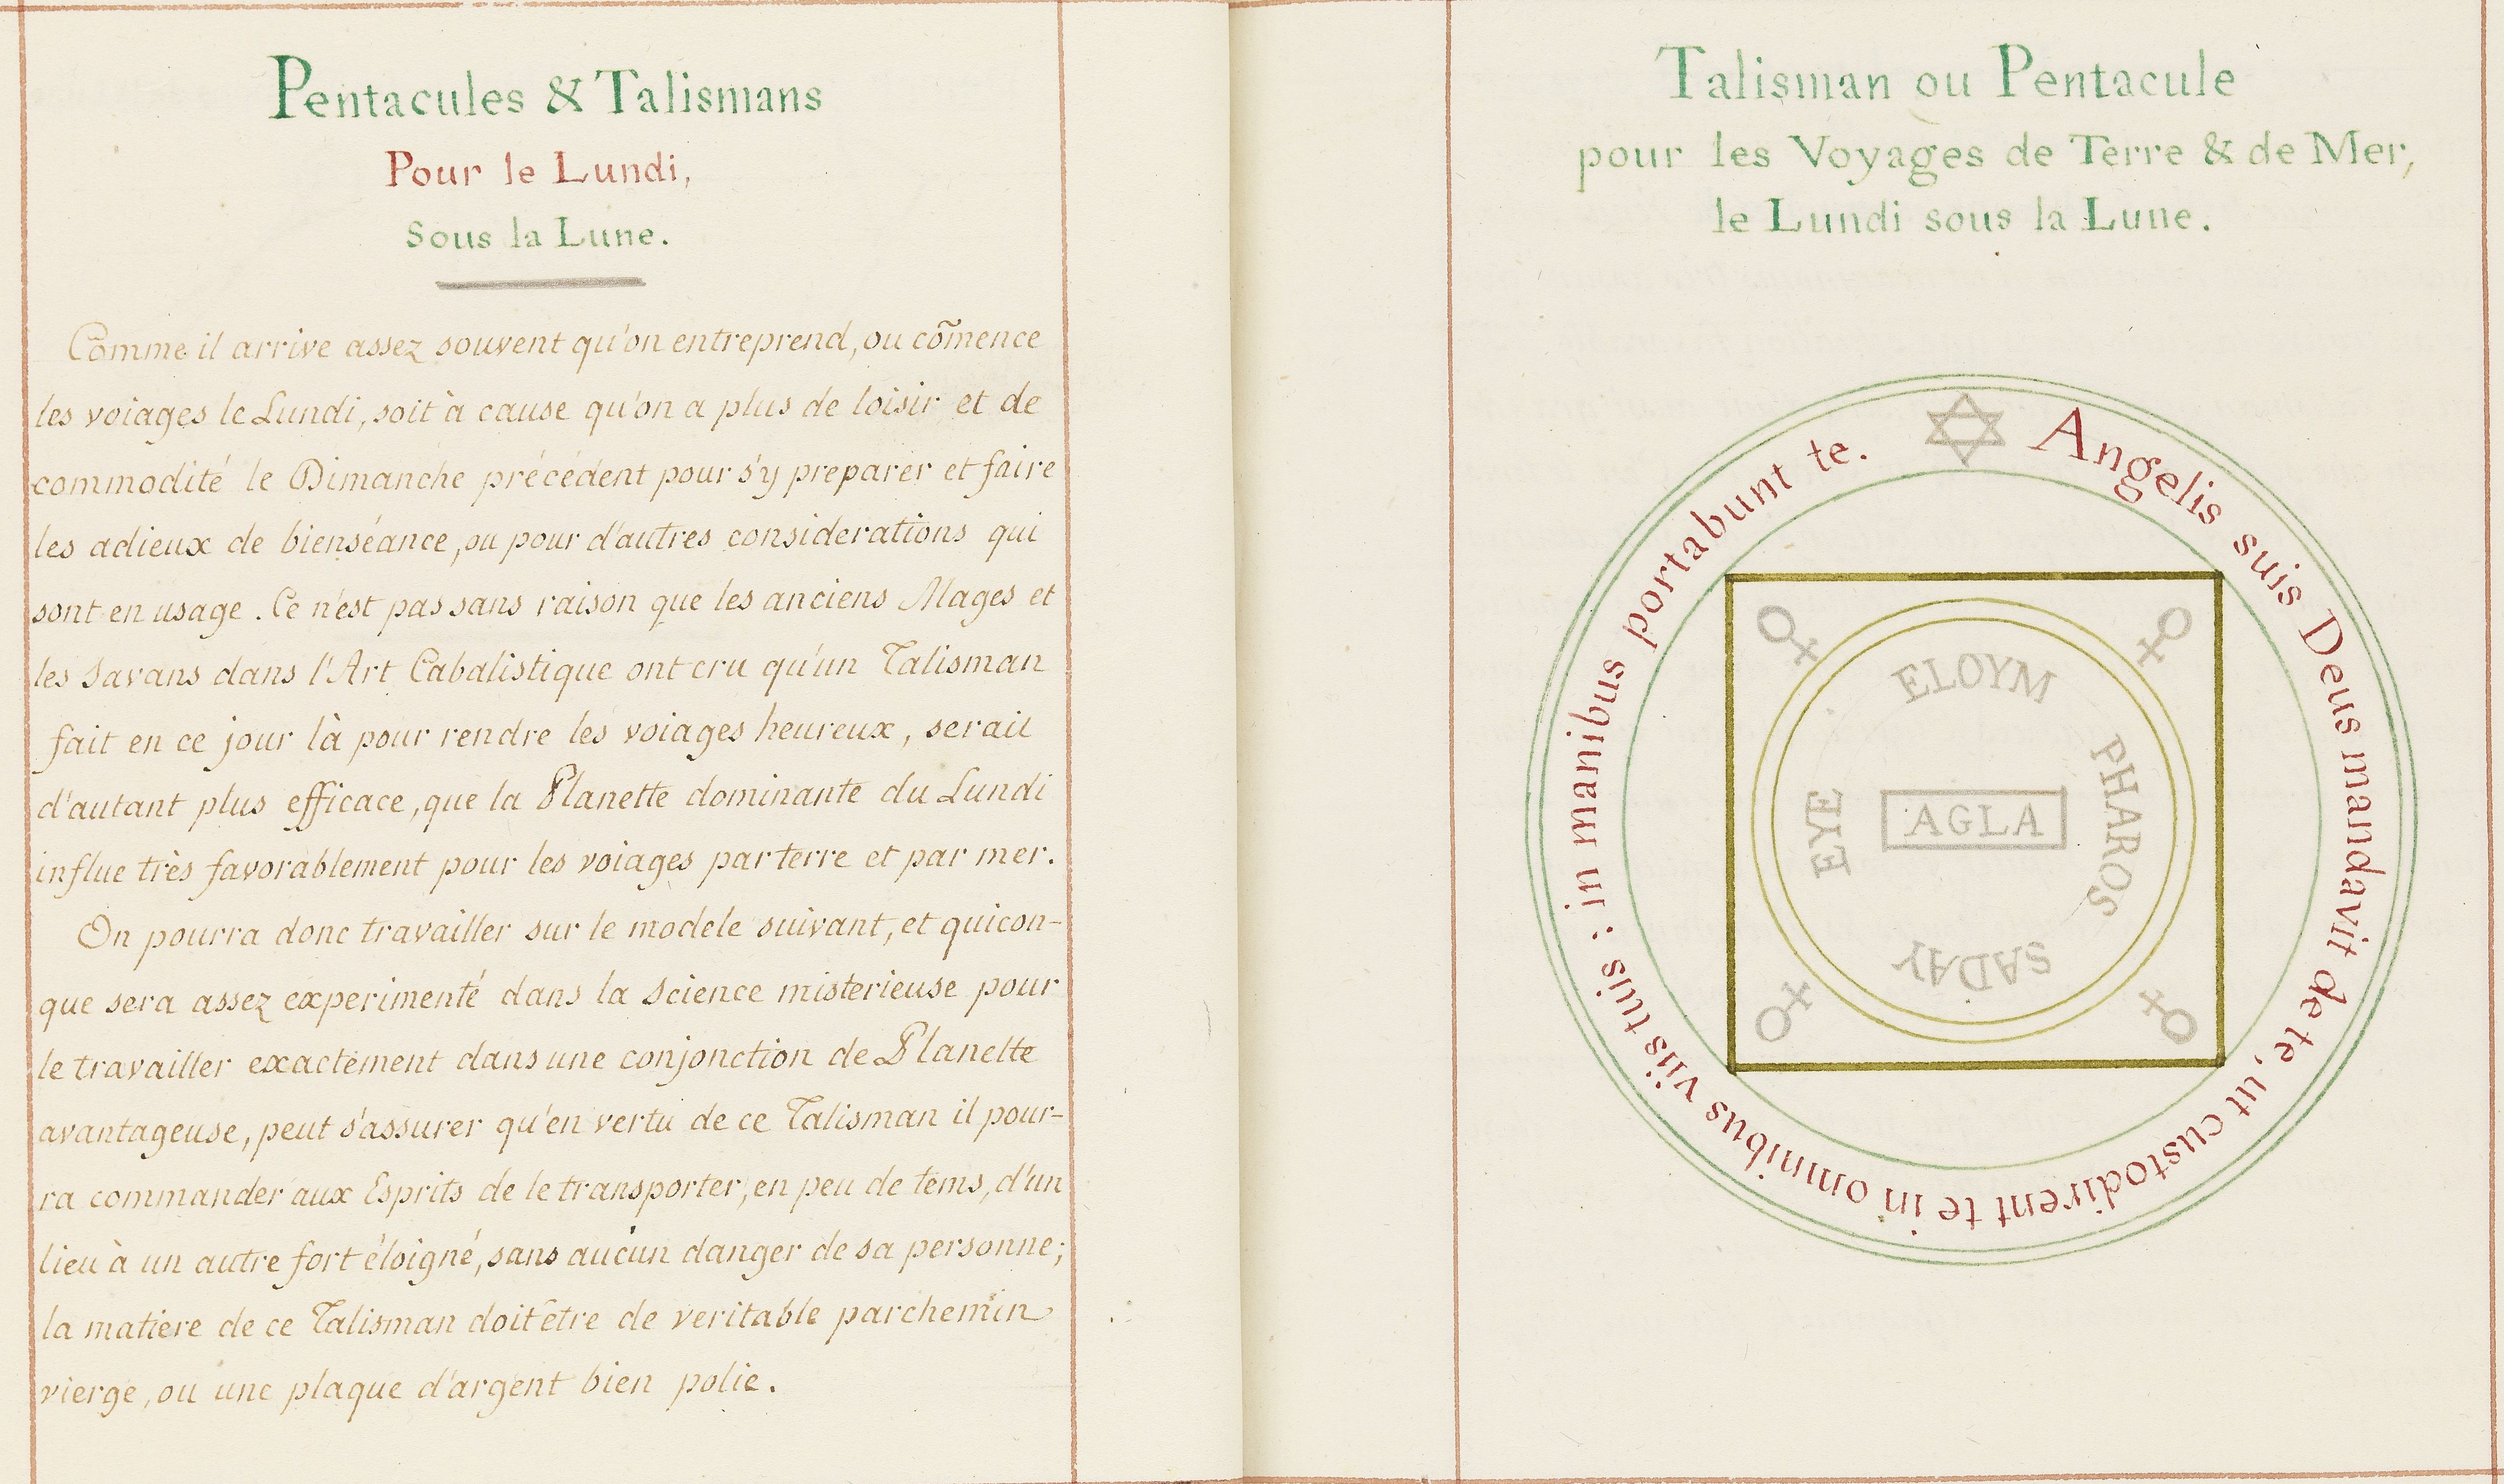 Pentacules & Talismans
Pour le Lundi,
Sous la Lune.
Comme il arrive assez souvent qu'on entreprend, ou cõmence
les voiages le Lundi, soit à cause qu'on a plus de loisir et de
commodité le Dimanche précédent pour s'y preparer et faire
les adieux de bienséance, ou pour d'autres considerations qui
sont en usage. Ce n'est pas sans raison que les anciens Mages et
les Savans dans l'Art Cabalistique ont cru qu'un Talisman
fait en ce jour là pour rendre les voiages heureux, serait
d'autant plus efficace, que la Planette dominante du Lundi
influe très favorablement pour les voiages par terre et par mer.
On pourra donc travailler sur le modele suivant, et quicon-
que sera assez experimenté dans la Science misterieuse pour
le travailler exactement dans une conjonction de Planette
avantageuse, peut s'assurer qu'en vertu de ce Talisman il pour-
ra commander aux Esprits de le transporter, en peu de tems, d'un
lieu à un autre fort éloigné, sans aucun danger de sa personne;
la matiere de ce Talisman doit être de veritable parchemin
vierge, ou une plaque d'argent bien polie.
Talisman ou Pentacule
pour les Voyages de Terre & de Mer,
le Lundi sous la Lune.
Angelis suis Deus mandavit de te, ut custodirent te in omnibus viis tuis : in manibus portabunt te.
ELOYM
PHAROS
SADAY
EYE
AGLA